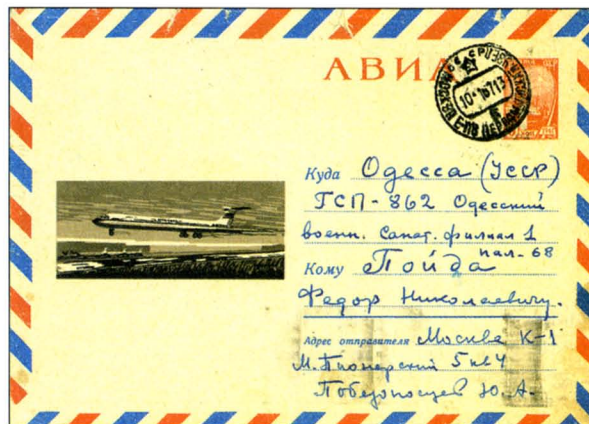 АВИА
Куда Одесса (УССР)
ГСП-862 Одесский
военн. Санат. филиал 1
пал-68
Кому Пойда
Федор Николаевичу.
Адрес отправителя Москва К-1
М. Пионерский 5 кв 4
Победоносцев Ю. А.